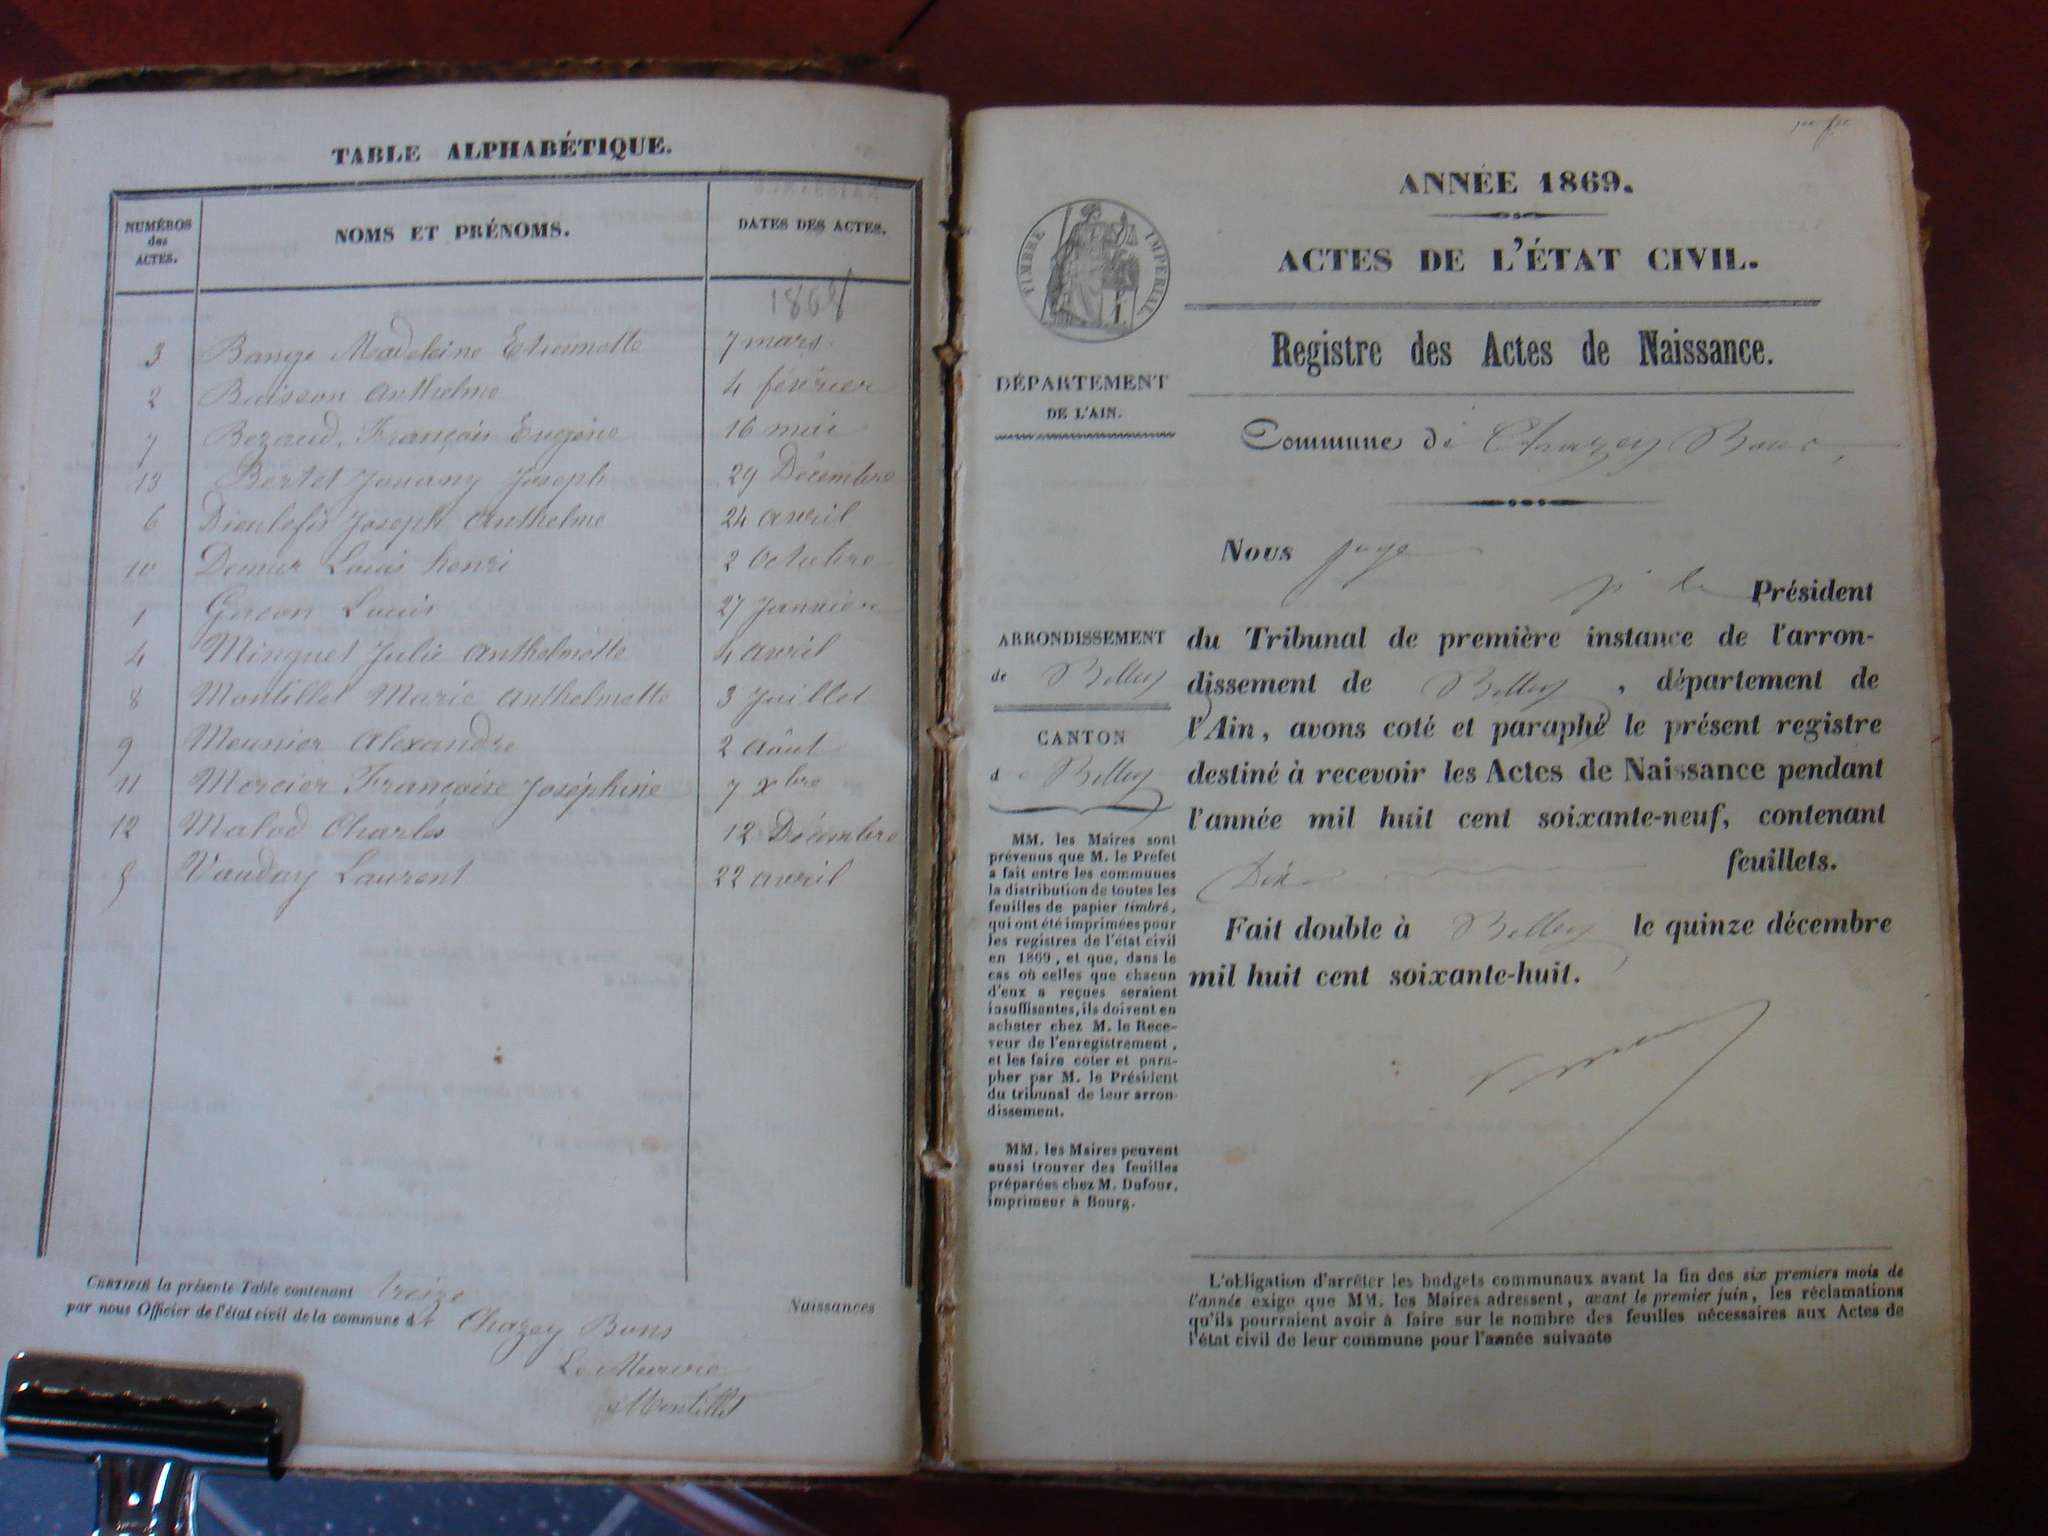 TABLE ALPHABÉTIQUE.
NUMÉROS des ACTES. NOMS ET PRÉNOMS. DATES DES ACTES.
1868
3 Bange Madeleine Etiennette 7 mars
2 Buisson Anthelme 4 février
7 Bezaud, François Eugène 16 mai
13 Bertet Jouany Joseph 29 Décembre
6 Dieulefis Joseph Anthelme 24 avril
10 Louis henri 2 Octobre
1 Louis 27 Janvier
4 Minguet Julie Anthelmette 4 avril
8 Montillet Marie Anthelmette 3 Juillet
9 Meunier Alexandre 2 Août
11 Mercier Françoise Joséphine 7 Xbre
12 Malod Charles 12 Décembre
5 Vauday Laurent 22 avril
CERTIFIÉ la présente Table contenant treize Naissances
par nous Officier de l'état civil de la commune de Chazey Bons
Le Maire
Montillet
ANNÉE 1869.
ACTES DE L'ÉTAT CIVIL.
TIMBRE IMPÉRIAL
Registre des Actes de Naissance.
DÉPARTEMENT
DE L'AIN.
Commune de Chazey Bons
Nous juge
Président
du Tribunal de première instance de l'arron-
dissement de Belley, département de
l'Ain, avons coté et paraphé le présent registre
destiné à recevoir les Actes de Naissance pendant
l'année mil huit cent soixante-neuf, contenant
Dix feuillets.
Fait double à Belley le quinze décembre
mil huit cent soixante-huit.
ARRONDISSEMENT
de Belley
CANTON
de Belley
MM. les Maires sont
prévenus que M. le Prefet
a fait entre les communes
la distribution de toutes les
feuilles de papier timbré,
qui ont été imprimées pour
les registres de l'état civil
en 1869, et que, dans le
cas où celles que chacun
d'eux a reçues seraient
insuffisantes, ils doivent en
acheter chez M. le Rece-
veur de l'enregistrement,
et les faire coter et para-
pher par M. le Président
du tribunal de leur arron-
dissement.
MM. les Maires peuvent
aussi trouver des feuilles
préparées chez M. Dufour,
imprimeur à Bourg.
L'obligation d'arrêter les budgets communaux avant la fin des six premiers mois de
l'année exige que MM. les Maires adressent, avant le premier juin, les réclamations
qu'ils pourraient avoir à faire sur le nombre des feuilles nécessaires aux Actes de
l'état civil de leur commune pour l'année suivante